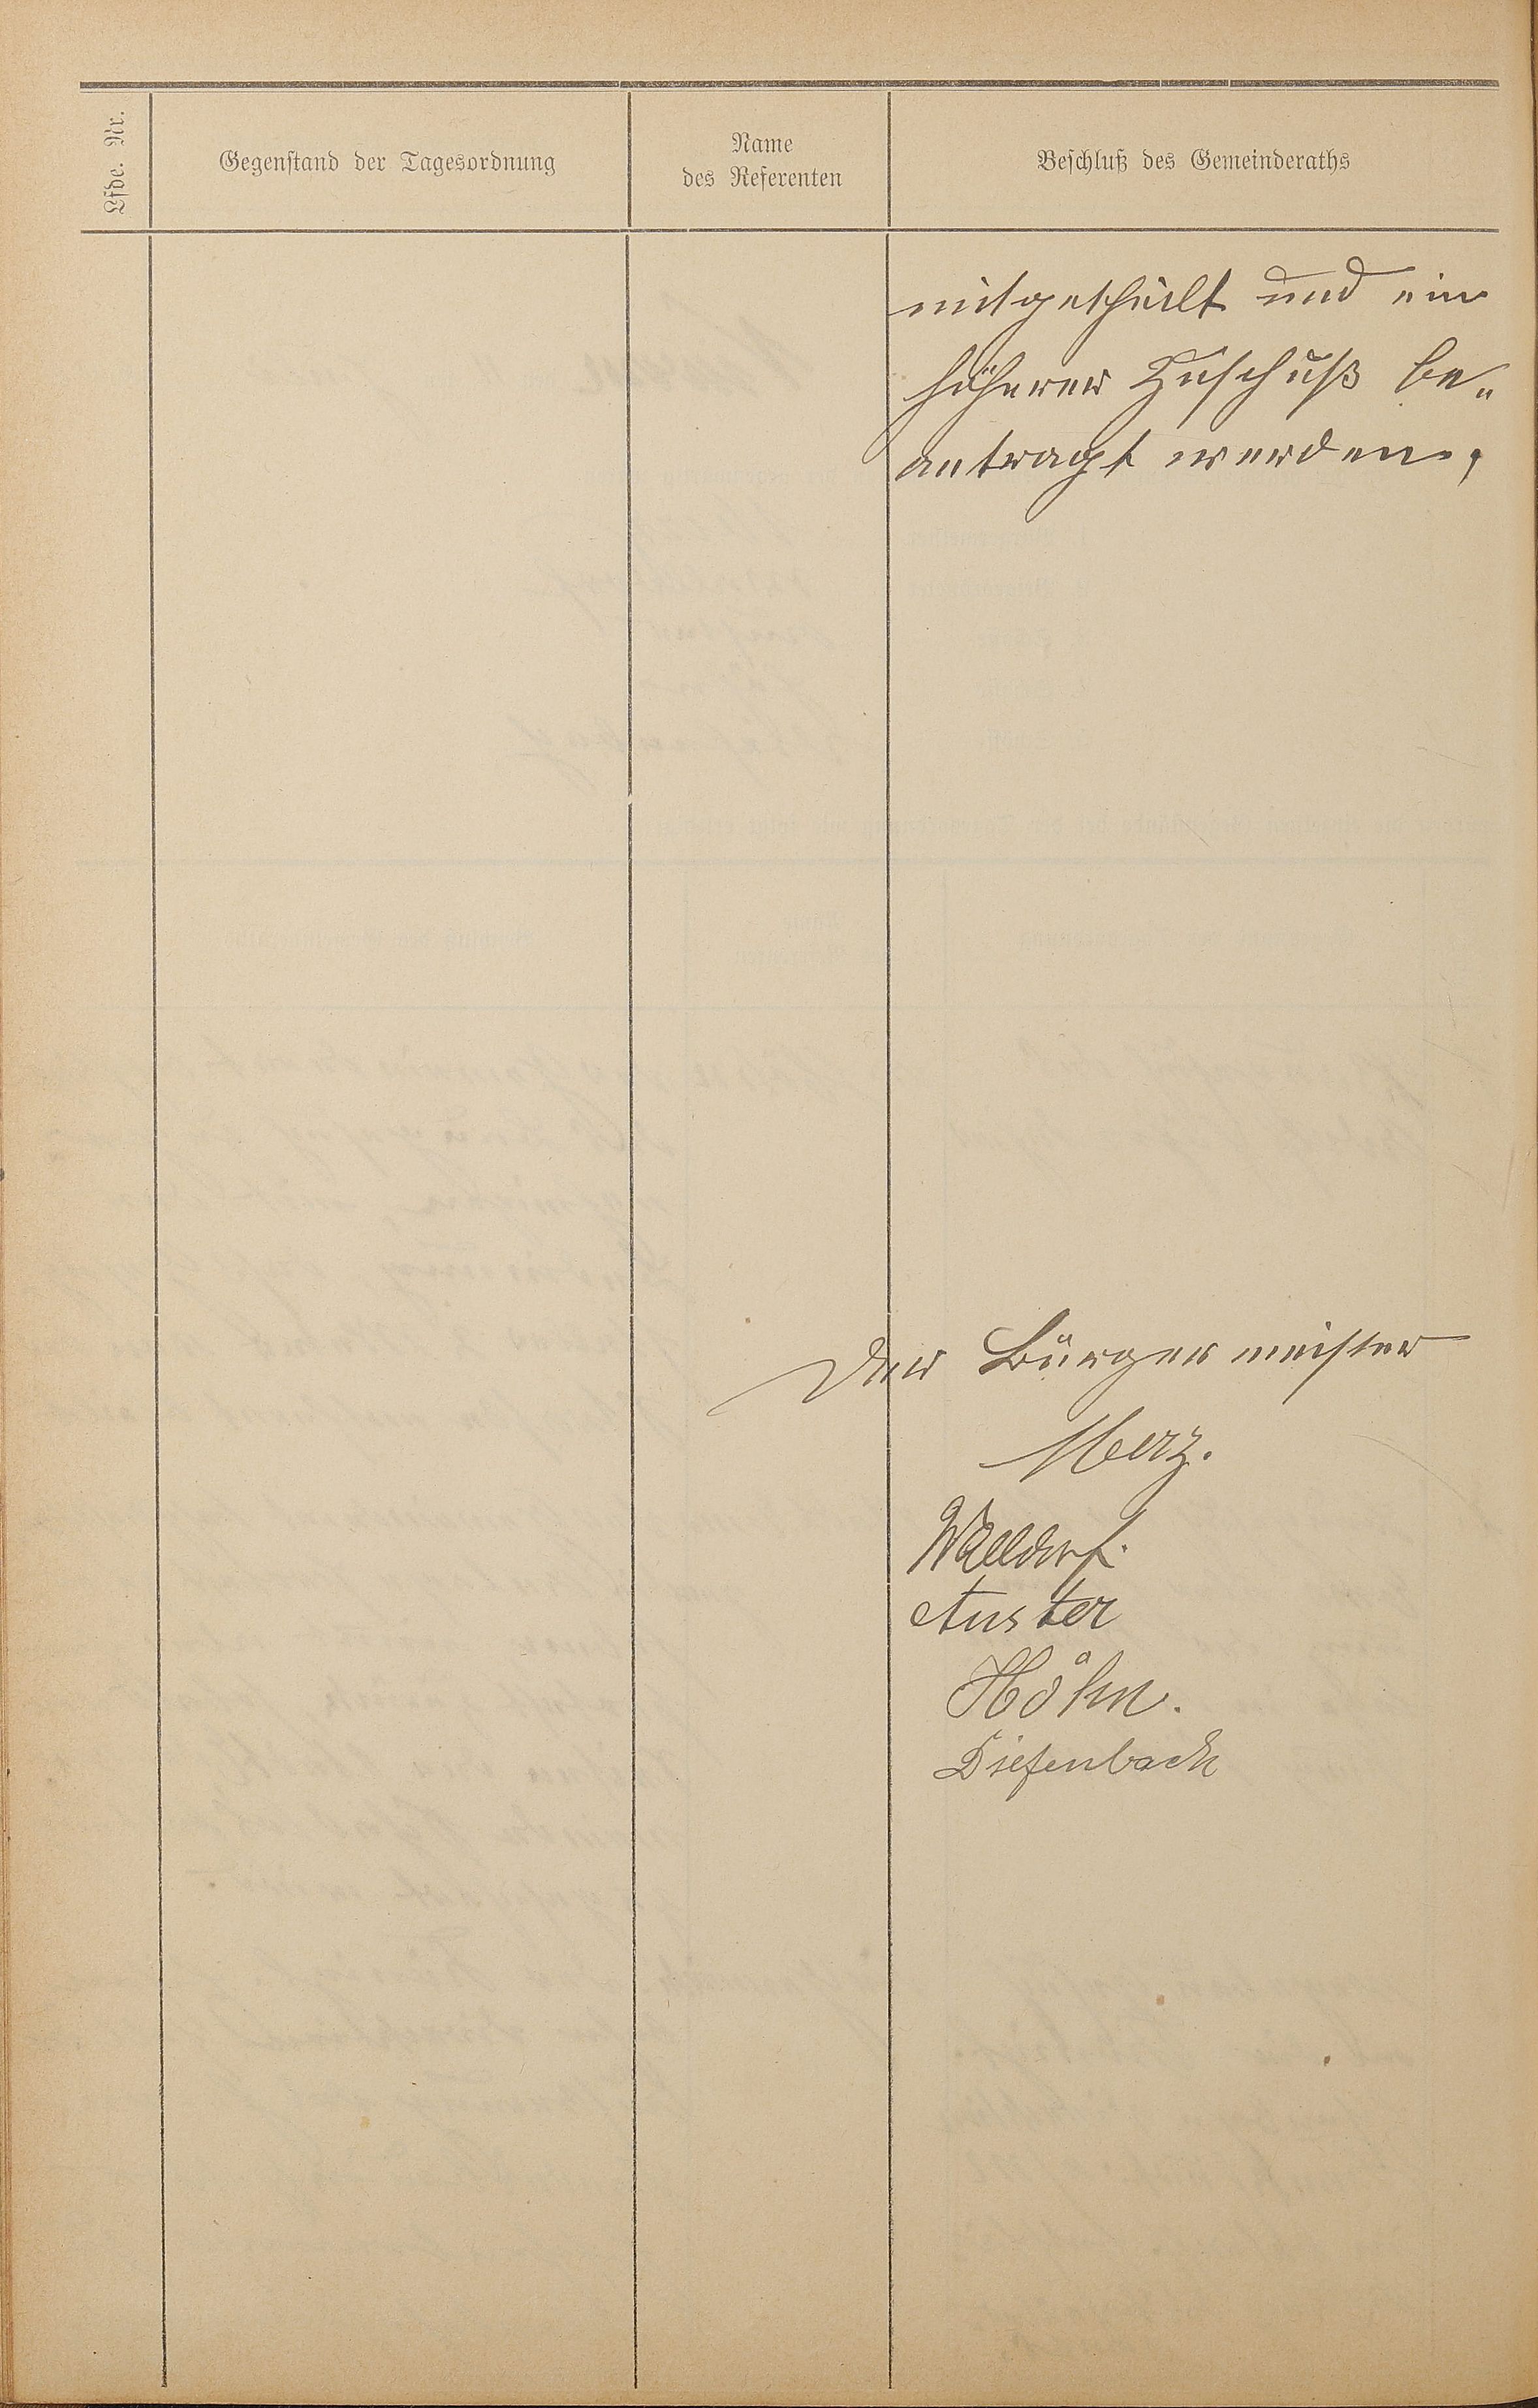 Lfde. Nr.
Gegenstand der Tagesordnung
Name
des Referenten
Beschluß des Gemeinderaths
mitgetheilt und ein
höherer Zuschuß be„
antragt werden.
Der Bürgermeister
Merz.
Walldorf.
Auster
Höhn.
Diefenbach